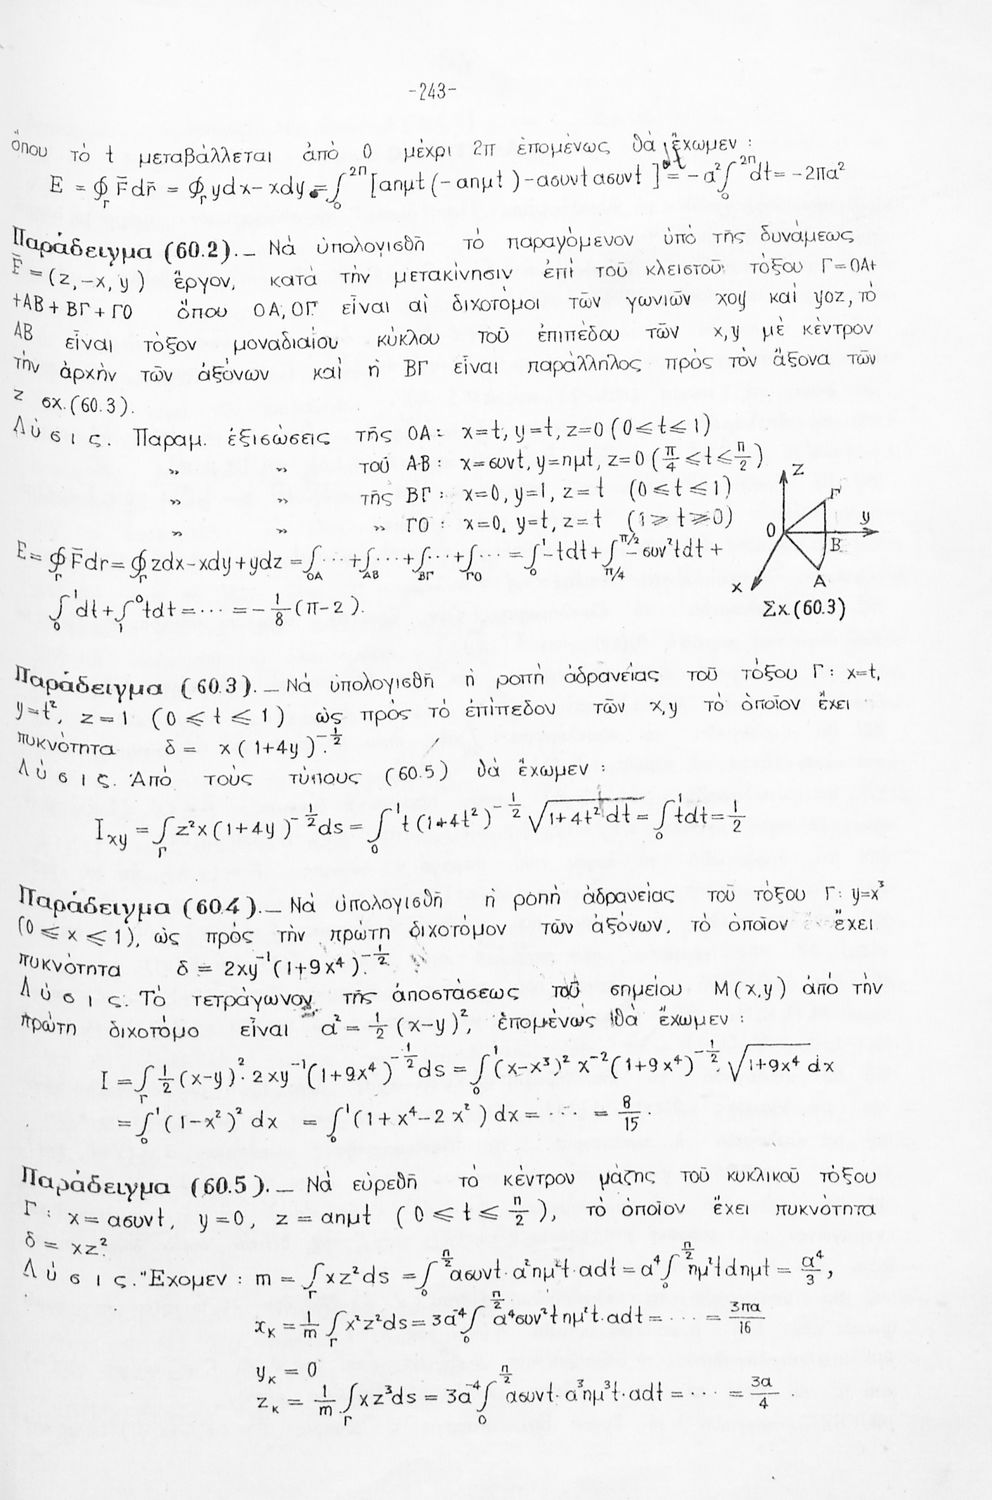 -243-
ὅπου τὸ t μεταβάλλεται ἀπὸ 0 μέχρι 2π ἑπομένως θὰ ἔχωμεν :
E = ∮_Γ F̄dr̄ = ∮_Γ ydx-xdy = ∫_0^{2π} [αημt(-αημt)-ασυνtασυνt]dt = -α²∫_0^{2π}dt = -2πα²
Παράδειγμα (60.2)._ Νὰ ὑπολογισθῇ τὸ παραγόμενον ὑπὸ τῆς δυνάμεως
F̄ = (z,-x, y) ἔργον, κατὰ τὴν μετακίνησιν ἐπὶ τοῦ κλειστοῦ τόξου Γ=ΟΑ+
+ΑΒ+ΒΓ+ΓΟ ὅπου ΟΑ,ΟΓ εἶναι αἱ διχοτόμοι τῶν γωνιῶν xoy καὶ yoz, τὸ
ΑΒ εἶναι τόξον μοναδιαίου κύκλου τοῦ ἐπιπέδου τῶν x,y μὲ κέντρον
τὴν ἀρχὴν τῶν ἀξόνων καὶ ἡ ΒΓ εἶναι παράλληλος πρὸς τὸν ἄξονα τῶν
z σχ.(60.3).
Λύσις. Παραμ. ἐξισώσεις τῆς ΟΑ: x=t, y=t, z=0 (0≤t≤1)
„ „ τοῦ ΑΒ: x=συνt, y=ημt, z=0 (π/4≤t≤π/2)
„ „ τῆς ΒΓ: x=0, y=1, z=t (0≤t≤1)
„ „ „ ΓΟ: x=0, y=t, z=t (1≥t≥0)
E= ∮_Γ F̄dr̄ = ∮_Γ zdx-xdy+ydz = ∫_{ΟΑ}···+∫_{ΑΒ}···+∫_{ΒΓ}···+∫_{ΓΟ}··· = ∫_0^1 -tdt+∫_{π/4}^{π/2} -συν²tdt +
∫_0^1 dt+∫_1^0 tdt = ··· = -1/8(π-2).
z
Γ
O
y
B
x
A
Σχ(60.3)
Παράδειγμα (60.3)._ Νὰ ὑπολογισθῇ ἡ ροπὴ ἀδρανείας τοῦ τόξου Γ: x=t,
y=t², z=1 (0≤t≤1) ὡς πρὸς τὸ ἐπίπεδον τῶν x,y τὸ ὁποῖον ἔχει
πυκνότητα δ = x(1+4y)^{-1/2}.
Λύσις. Ἀπὸ τοὺς τύπους (60.5) θὰ ἔχωμεν :
I_{xy} = ∫_Γ z²x(1+4y)^{-1/2}ds = ∫_0^1 t(1+4t²)^{-1/2} √(1+4t²) dt = ∫_0^1 tdt = 1/2
Παράδειγμα (60.4)._ Νὰ ὑπολογισθῇ ἡ ροπὴ ἀδρανείας τοῦ τόξου Γ: y=x³
(0≤x≤1), ὡς πρὸς τὴν πρώτη διχοτόμον τῶν ἀξόνων, τὸ ὁποῖον ἔχει
πυκνότητα δ = 2xy^{-1}(1+9x⁴)^{-1/2}.
Λύσις. Τὸ τετράγωνον τῆς ἀποστάσεως τοῦ σημείου M(x,y) ἀπὸ τὴν
πρώτη διχοτόμο εἶναι α² = 1/2 (x-y)², ἑπομένως θὰ ἔχωμεν :
I = ∫_Γ 1/2(x-y)²·2xy^{-1}(1+9x⁴)^{-1/2}ds = ∫_0^1 (x-x³)² x^{-2}(1+9x⁴)^{-1/2}·√(1+9x⁴) dx
= ∫_0^1 (1-x²)² dx = ∫_0^1 (1+x⁴-2x²)dx = ··· = 8/15.
Παράδειγμα (60.5)._ Νὰ εὑρεθῇ τὸ κέντρον μάζης τοῦ κυκλικοῦ τόξου
Γ: x=ασυνt, y=0, z=αημt (0≤t≤π/2), τὸ ὁποῖον ἔχει πυκνότητα
δ = xz².
Λύσις. Ἔχομεν : m = ∫_Γ xz²ds = ∫_0^{π/2} ασυνt·α²ημ²t·αdt = α⁴∫_0^{π/2} ημ²tdημt = α⁴/3,
x_κ = 1/m ∫_Γ x²z²ds = 3α^{-4}∫_0^{π/2} α⁴συν²tημ²t·αdt = ··· = 3πα/16
y_κ = 0
z_κ = 1/m ∫_Γ xz³ds = 3α^{-4}∫_0^{π/2} ασυνt·α³ημ³t·αdt = ··· = 3α/4.